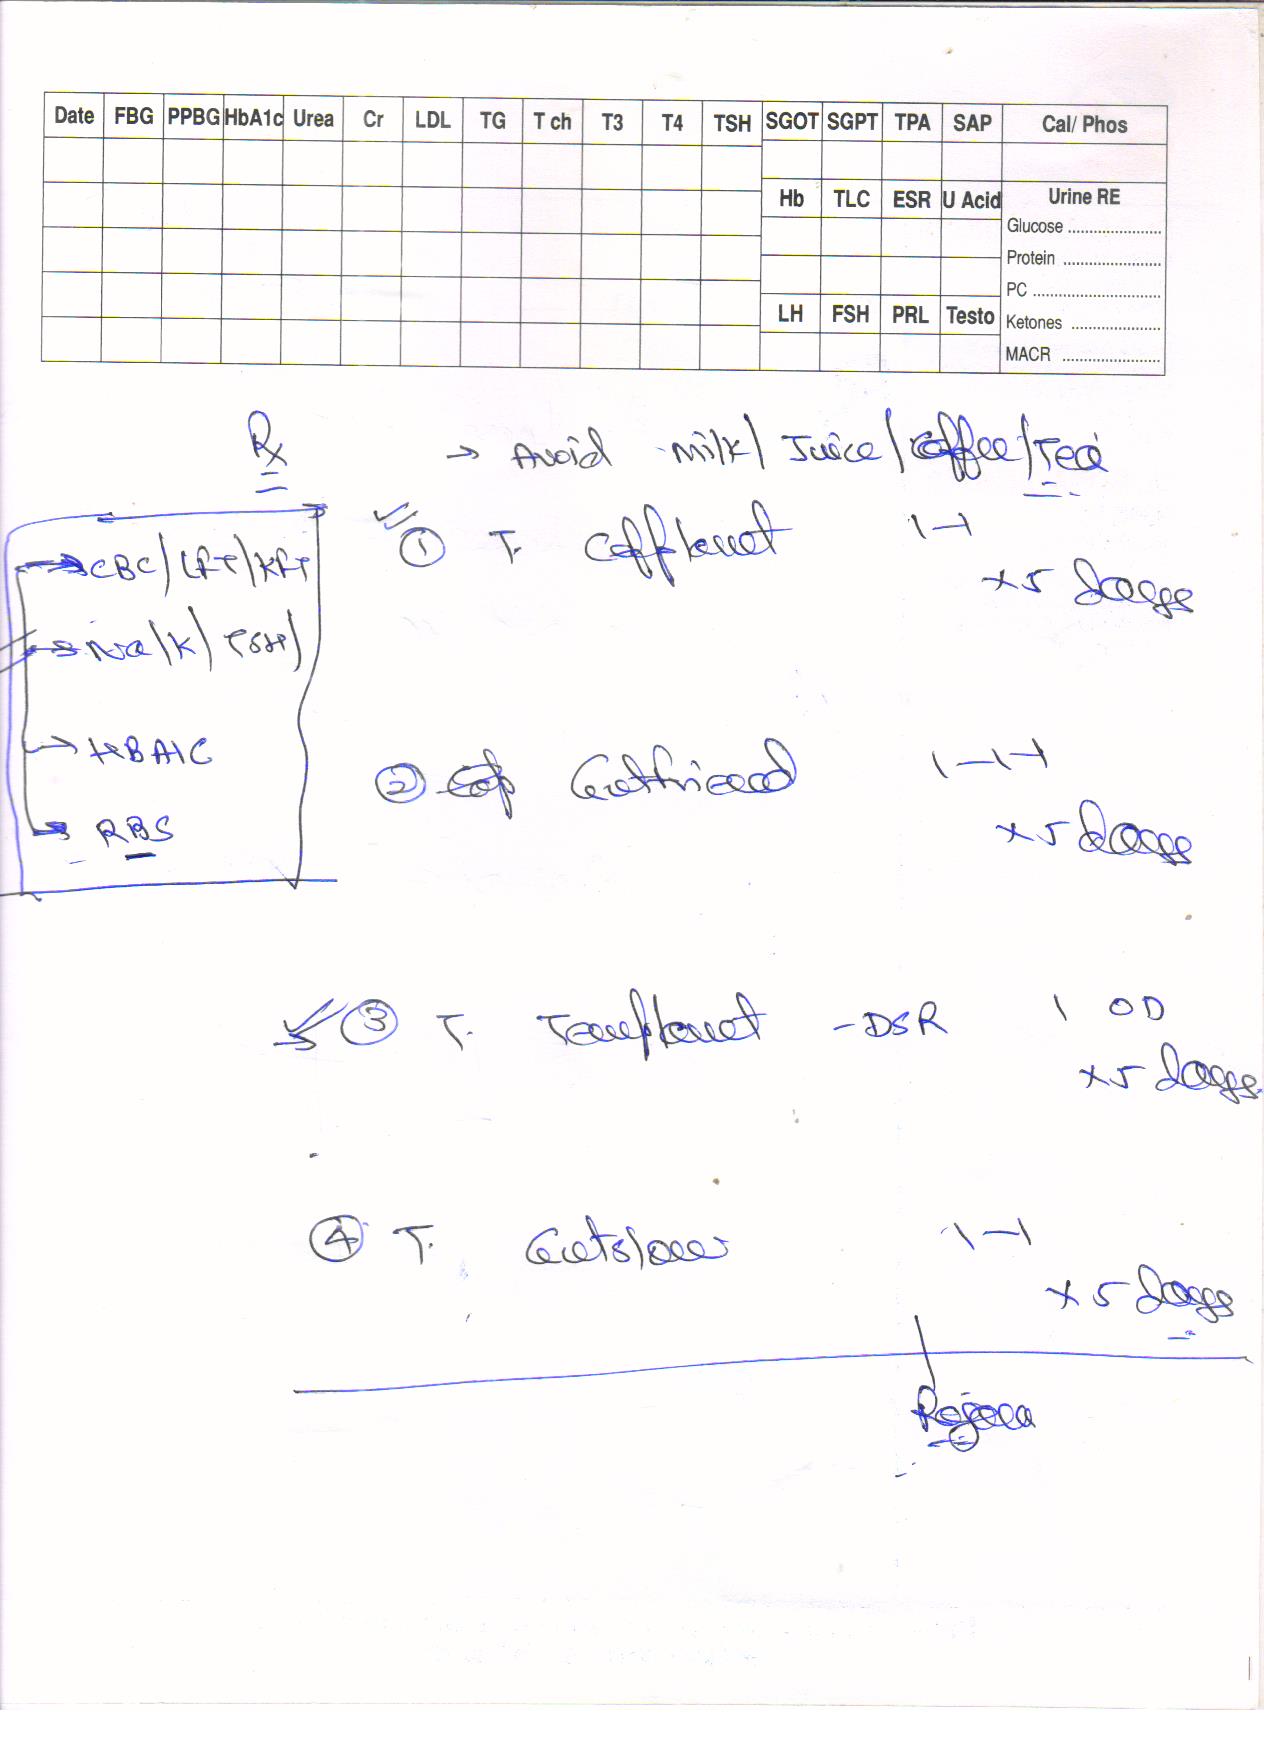 Date FBG PPBG HbA1c Urea Cr LDL TG T ch T3 T4 TSH SGOT SGPT TPA SAP Cal/ Phos
Hb TLC ESR U Acid Urine RE
Glucose ......................
Protein ......................
PC ......................
LH FSH PRL Testo Ketones ......................
MACR ......................
Rx → Avoid Milk/ Juice/Coffee/Tea
→ CBC/LFT/KFT
→ Na/K/TSH/
→ HBA1C
→ RBS
① T. 1-1
x 5 days
② Cap 1-1-1
x 5 days
③ T. -DSR 1 OD
x 5 days
④ T. 1-1
x 5 days